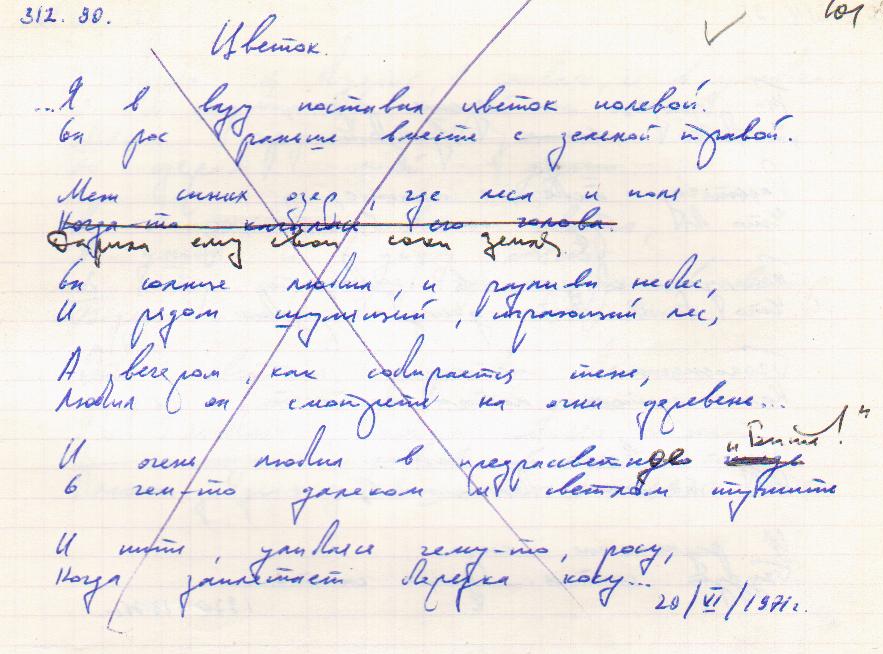 312. 90.
101
Цветок.
...Я в вазу поставил цветок полевой.
Он рос раньше вместе с зеленой травой.
Меж синих озер, где леса и поля
Когда-то качалась его голова.
Дарила ему свои соки земля
Он солнце любил, и разливы небес,
И рядом шумящий, играющий лес,
А вечером, как собирается тень,
Любил он смотреть на огни деревень...
И очень любил в предрассветную
О чем-то далеком и светлом тужить
И пить, улыбаясь чему-то, росу,
Когда заплетает березка косу...
20/VI/1971г.